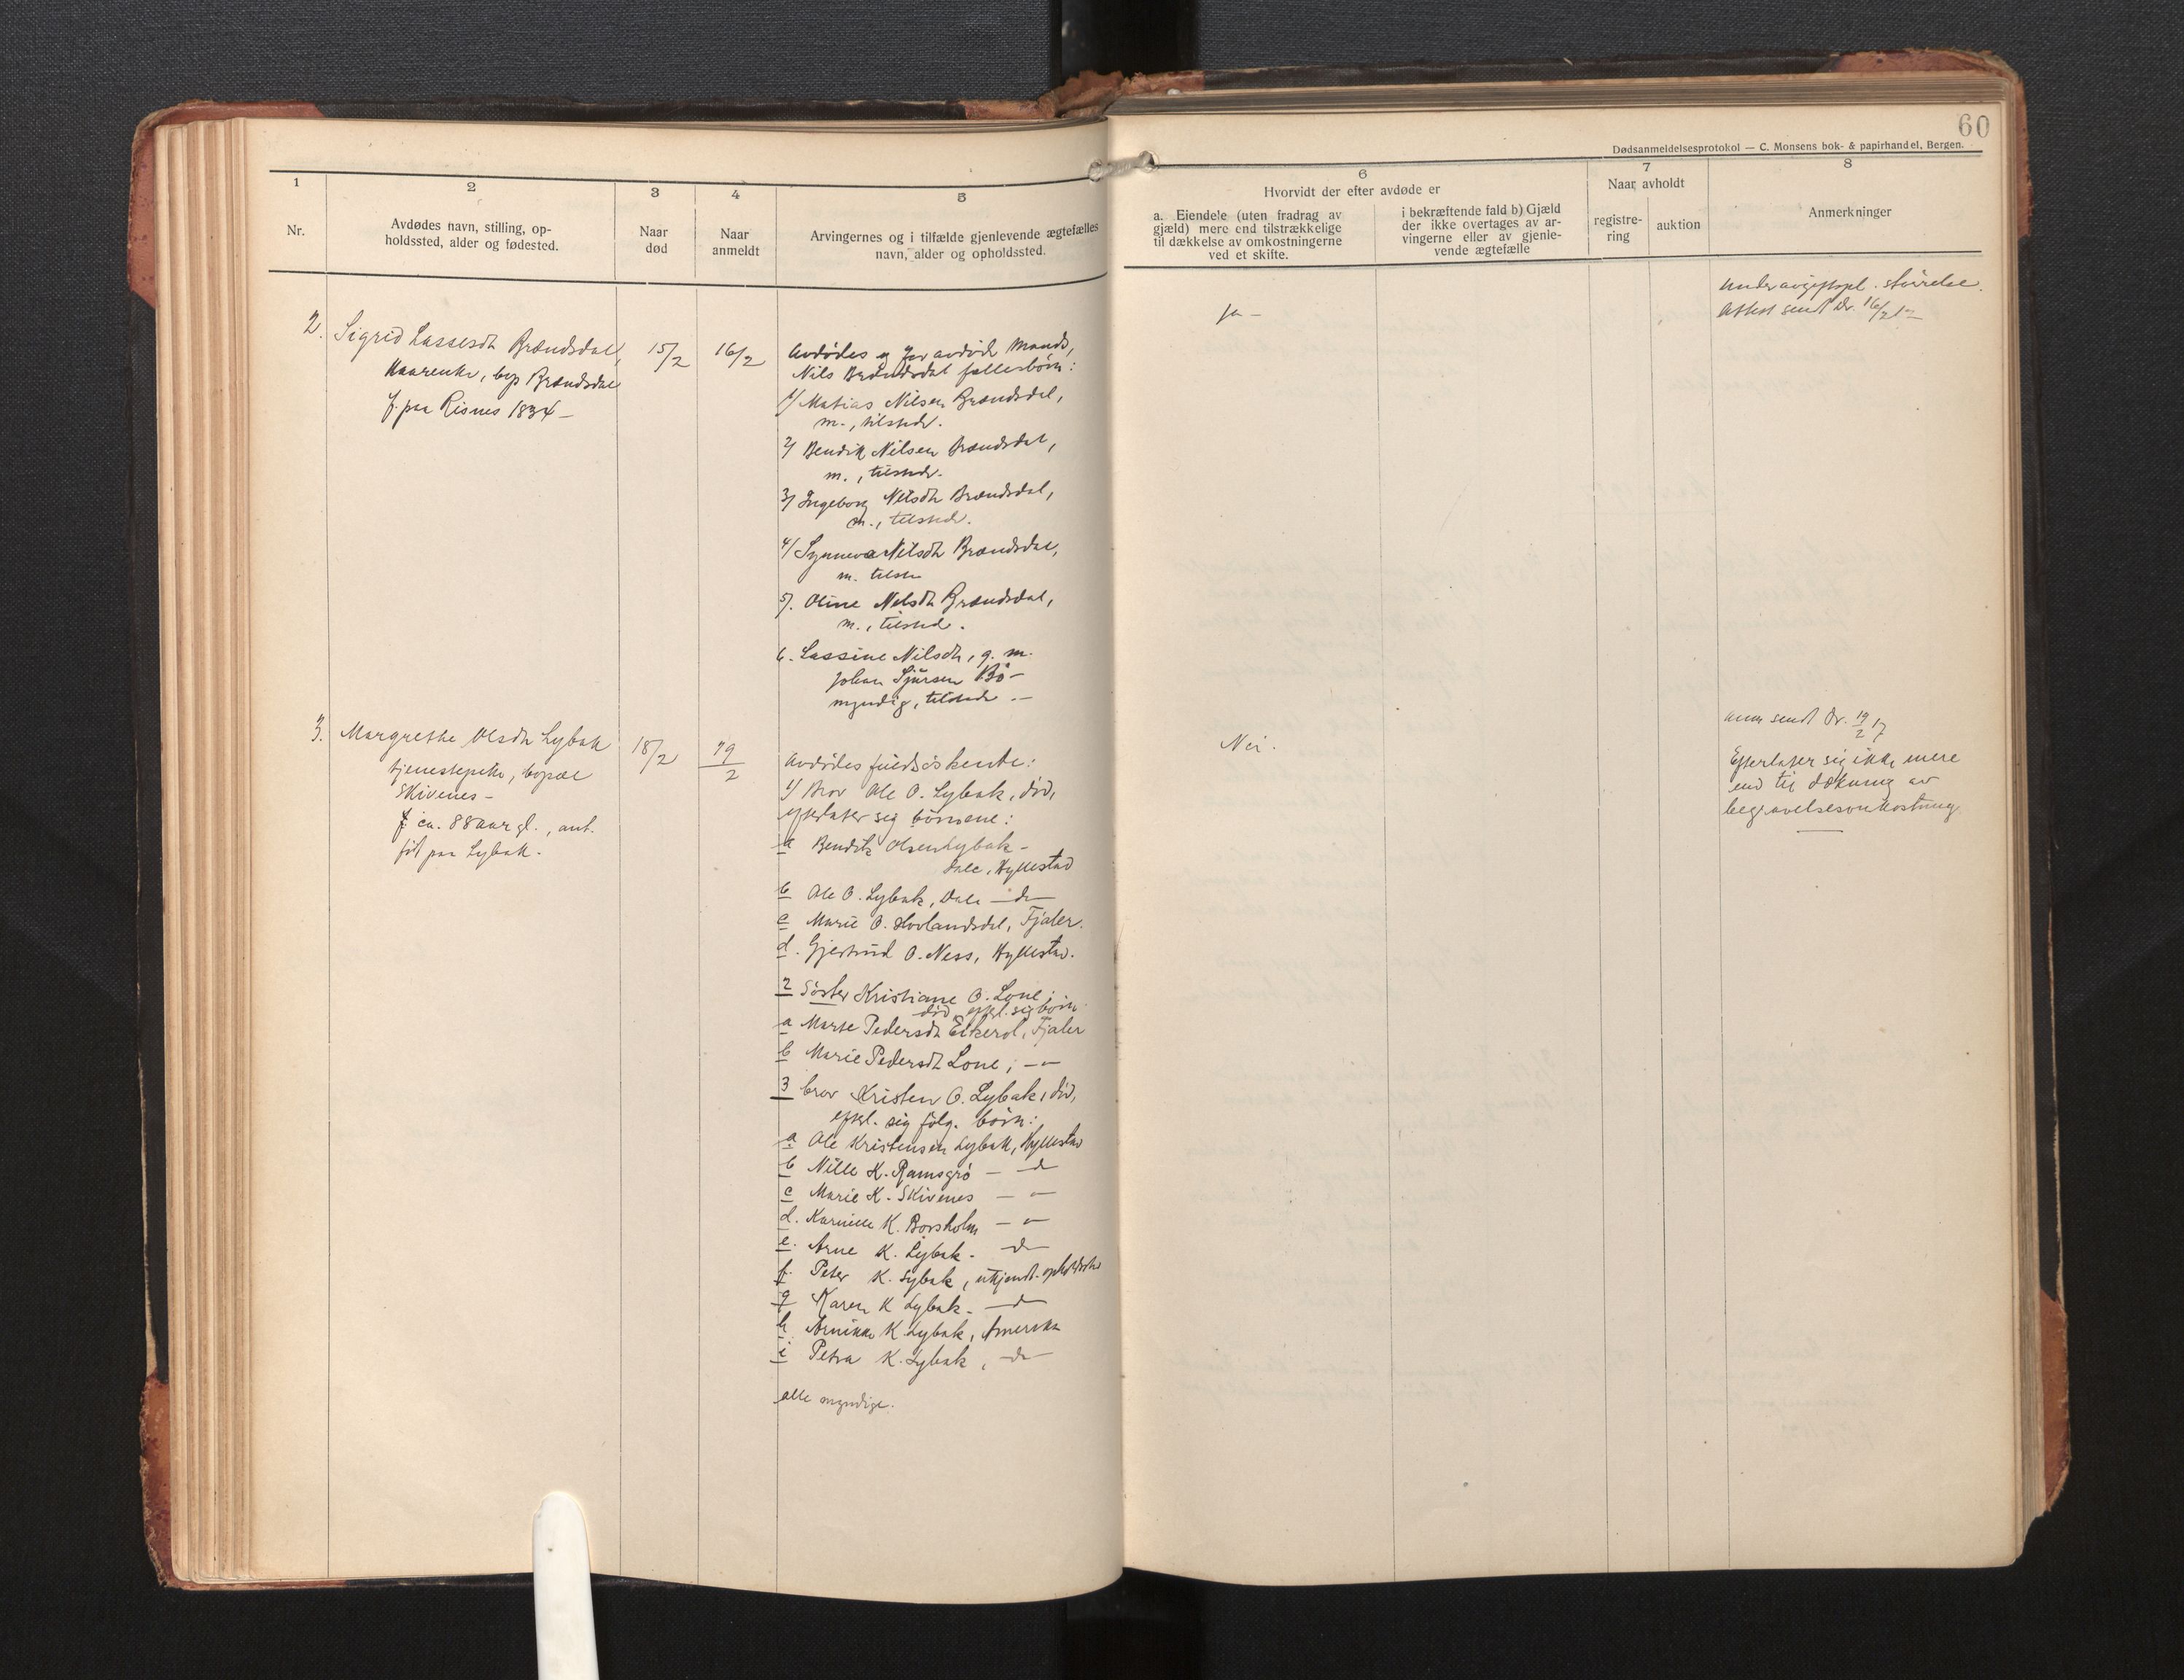 60
Dødsanmeldelsesprotokol — C. Monsens bok- & papirhandel, Bergen.
1
Nr.
2
Avdødes navn, stilling, op-
holdssted, alder og fødested.
3
Naar
død
4
Naar
anmeldt
5
Arvingernes og i tilfælde gjenlevende ægtefælles
navn, alder og opholdssted.
6
Hvorvidt der efter avdøde er
a. Eiendele (uten fradrag av
gjæld) mere end tilstrækkelige
til dækkelse av omkostningerne
ved et skifte.
i bekræftende fald b) Gjæld
der ikke overtages av ar-
vingerne eller av gjenle-
vende ægtefælle
7
Naar avholdt
registre-
ring
auktion
8
Anmerkninger
2.
Sigrid Lassesdtr Brændsdal,
Kaarenke, bop Brændsdal
f. paa Risnes 1834 —
15/2
16/2
Avdødes og før avdøde Mands,
Nils Brændsdal fællesbörn:
1/ Matias Nilsen Brændsdal,
m., tilstede.
2/ Bendik Nilsen Brændsdal,
m., tilstede.
3/ Ingeborg Nilsdtr Brændsdal,
m., tilstede.
4/ Synneva Nilsdtr Brændsdal,
m. tilste
5/. Oline Nilsdtr Brændsdal,
m., tilsted.
6. Lassine Nilsdtr, g. m.
Johan Sjursen Bö —
myndig, tilstede. —
ja —
under avgiftspl. störrelse.
Attest sendt Dr. 16/2 17
3.
Margrethe Olsdtr Lybak
tjenestepike, bopæl
Skivenes —
f ca. 88 aar gl., ant.
föt paa Lybak.
18/2
19/2
Avdødes fuldsöskende:
1/ Bror Ole O. Lybak, död,
efterlater sig börnene:
a Bendik Olsen Lybak —
Dale, Hyllestad
b Ole O. Lybak, Dale — do —
c Marie O. Hovlandsdal, Fjaler.
d. Gjertrud O. Ness, Hyllestad.
2 Söster Kristiane O. Lone;
död efterl. sig börn
a Marte Pedersdtr Eikerol, Fjaler
b Marie Pedersdtr Lone; — " —
3 bror Kristen O. Lybak, död,
efterl. sig fölg. börn:
a Ole Kristensen Lybak, Hyllestad
b Nille K. Ramsgrö — do
c Marie K. Skivenes — " —
d. Karnille K. Borsholm — " —
e. Arne K. Lybak — do —
f. Peter K. Lybak, ukjendt opholdssted
g Karen K Lybak — do —
h K. Lybak, Amerika
i Petra K. Lybak, — do —
alle myndige.
Nei.
Anm sendt Dr. 19/2 17
Efterlater sig ikke mere
end til dækning av
begravelsesomkostning